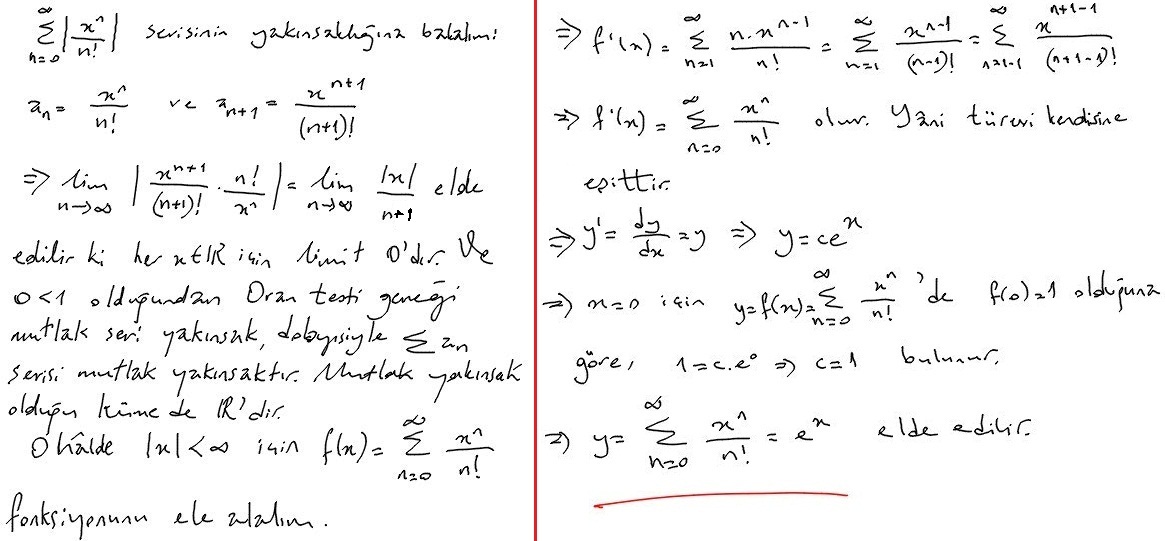 ∑_{n=0}^{∞} |x^n/n!| serisinin yakınsaklığına bakalım:
a_n = x^n/n! ve a_{n+1} = x^{n+1}/(n+1)!
⇒ lim_{n→∞} |x^{n+1}/(n+1)! · n!/x^n| = lim_{n→∞} |x|/(n+1) elde
edilir ki her x∈ℝ için limit 0'dır. Ve
0<1 olduğundan Oran testi gereği
mutlak seri yakınsak, dolayısıyla ∑a_n
serisi mutlak yakınsaktır. Mutlak yakınsak
olduğu küme de ℝ'dir.
O hâlde |x|<∞ için f(x) = ∑_{n=0}^{∞} x^n/n!
fonksiyonunu ele alalım.
⇒ f'(x) = ∑_{n=1}^{∞} n·x^{n-1}/n! = ∑_{n=1}^{∞} x^{n-1}/(n-1)! = ∑_{n=1-1}^{∞} x^{n+1-1}/(n+1-1)!
⇒ f'(x) = ∑_{n=0}^{∞} x^n/n! olur. Yâni türevi kendisine
eşittir.
⇒ y' = dy/dx = y ⇒ y = ce^x
⇒ x=0 için y=f(x)=∑_{n=0}^{∞} x^n/n! 'de f(0)=1 olduğuna
göre, 1=c.e^0 ⇒ c=1 bulunur.
⇒ y = ∑_{n=0}^{∞} x^n/n! = e^x elde edilir.